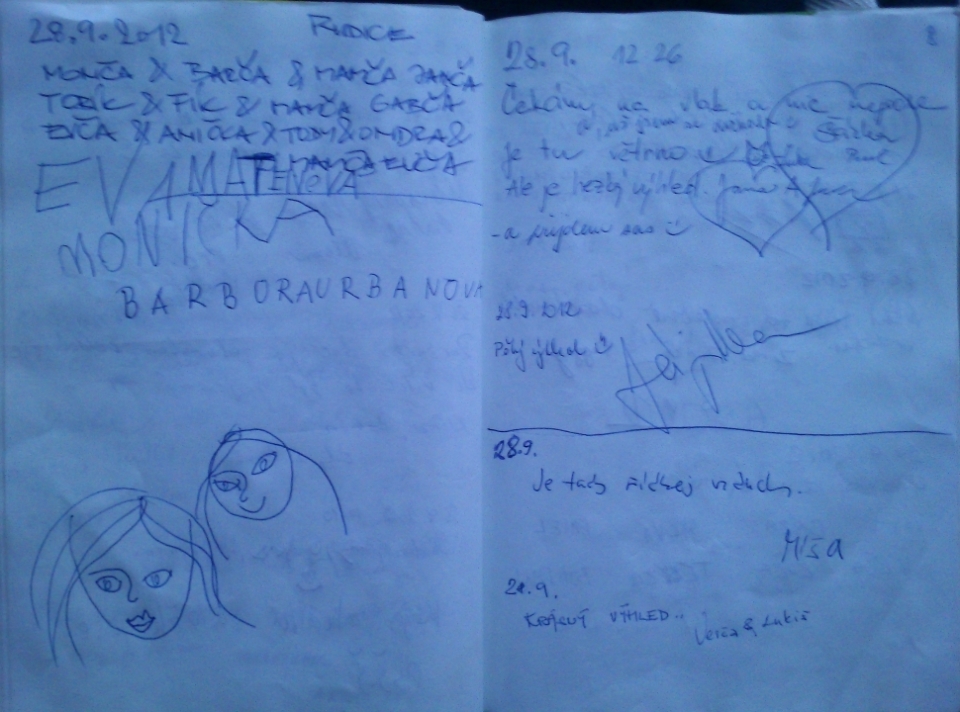 28.9.2012 RUDICE
MONČA & BARČA & MAMČA JANČA
TOBÍK & FÍK & MAMČA GABČA
EVČA & ANIČKA & TOM & ONDRA &
MAMČA EVČA
EVA MATĚNOVÁ
MONICKA
BARBORA URBANOVÁ
28.9. 12 26
Čekáme na vlak a nic nejede
je tu větrno
Ale je hezký výhled. Jana
- a přijdem zas
28.9.2012
Pěkný výhled
28.9.
Je tady řídkej vzduch.
MÍŠA
28.9.
KRÁSNÝ VÝHLED..
Verča & Lukáš
8